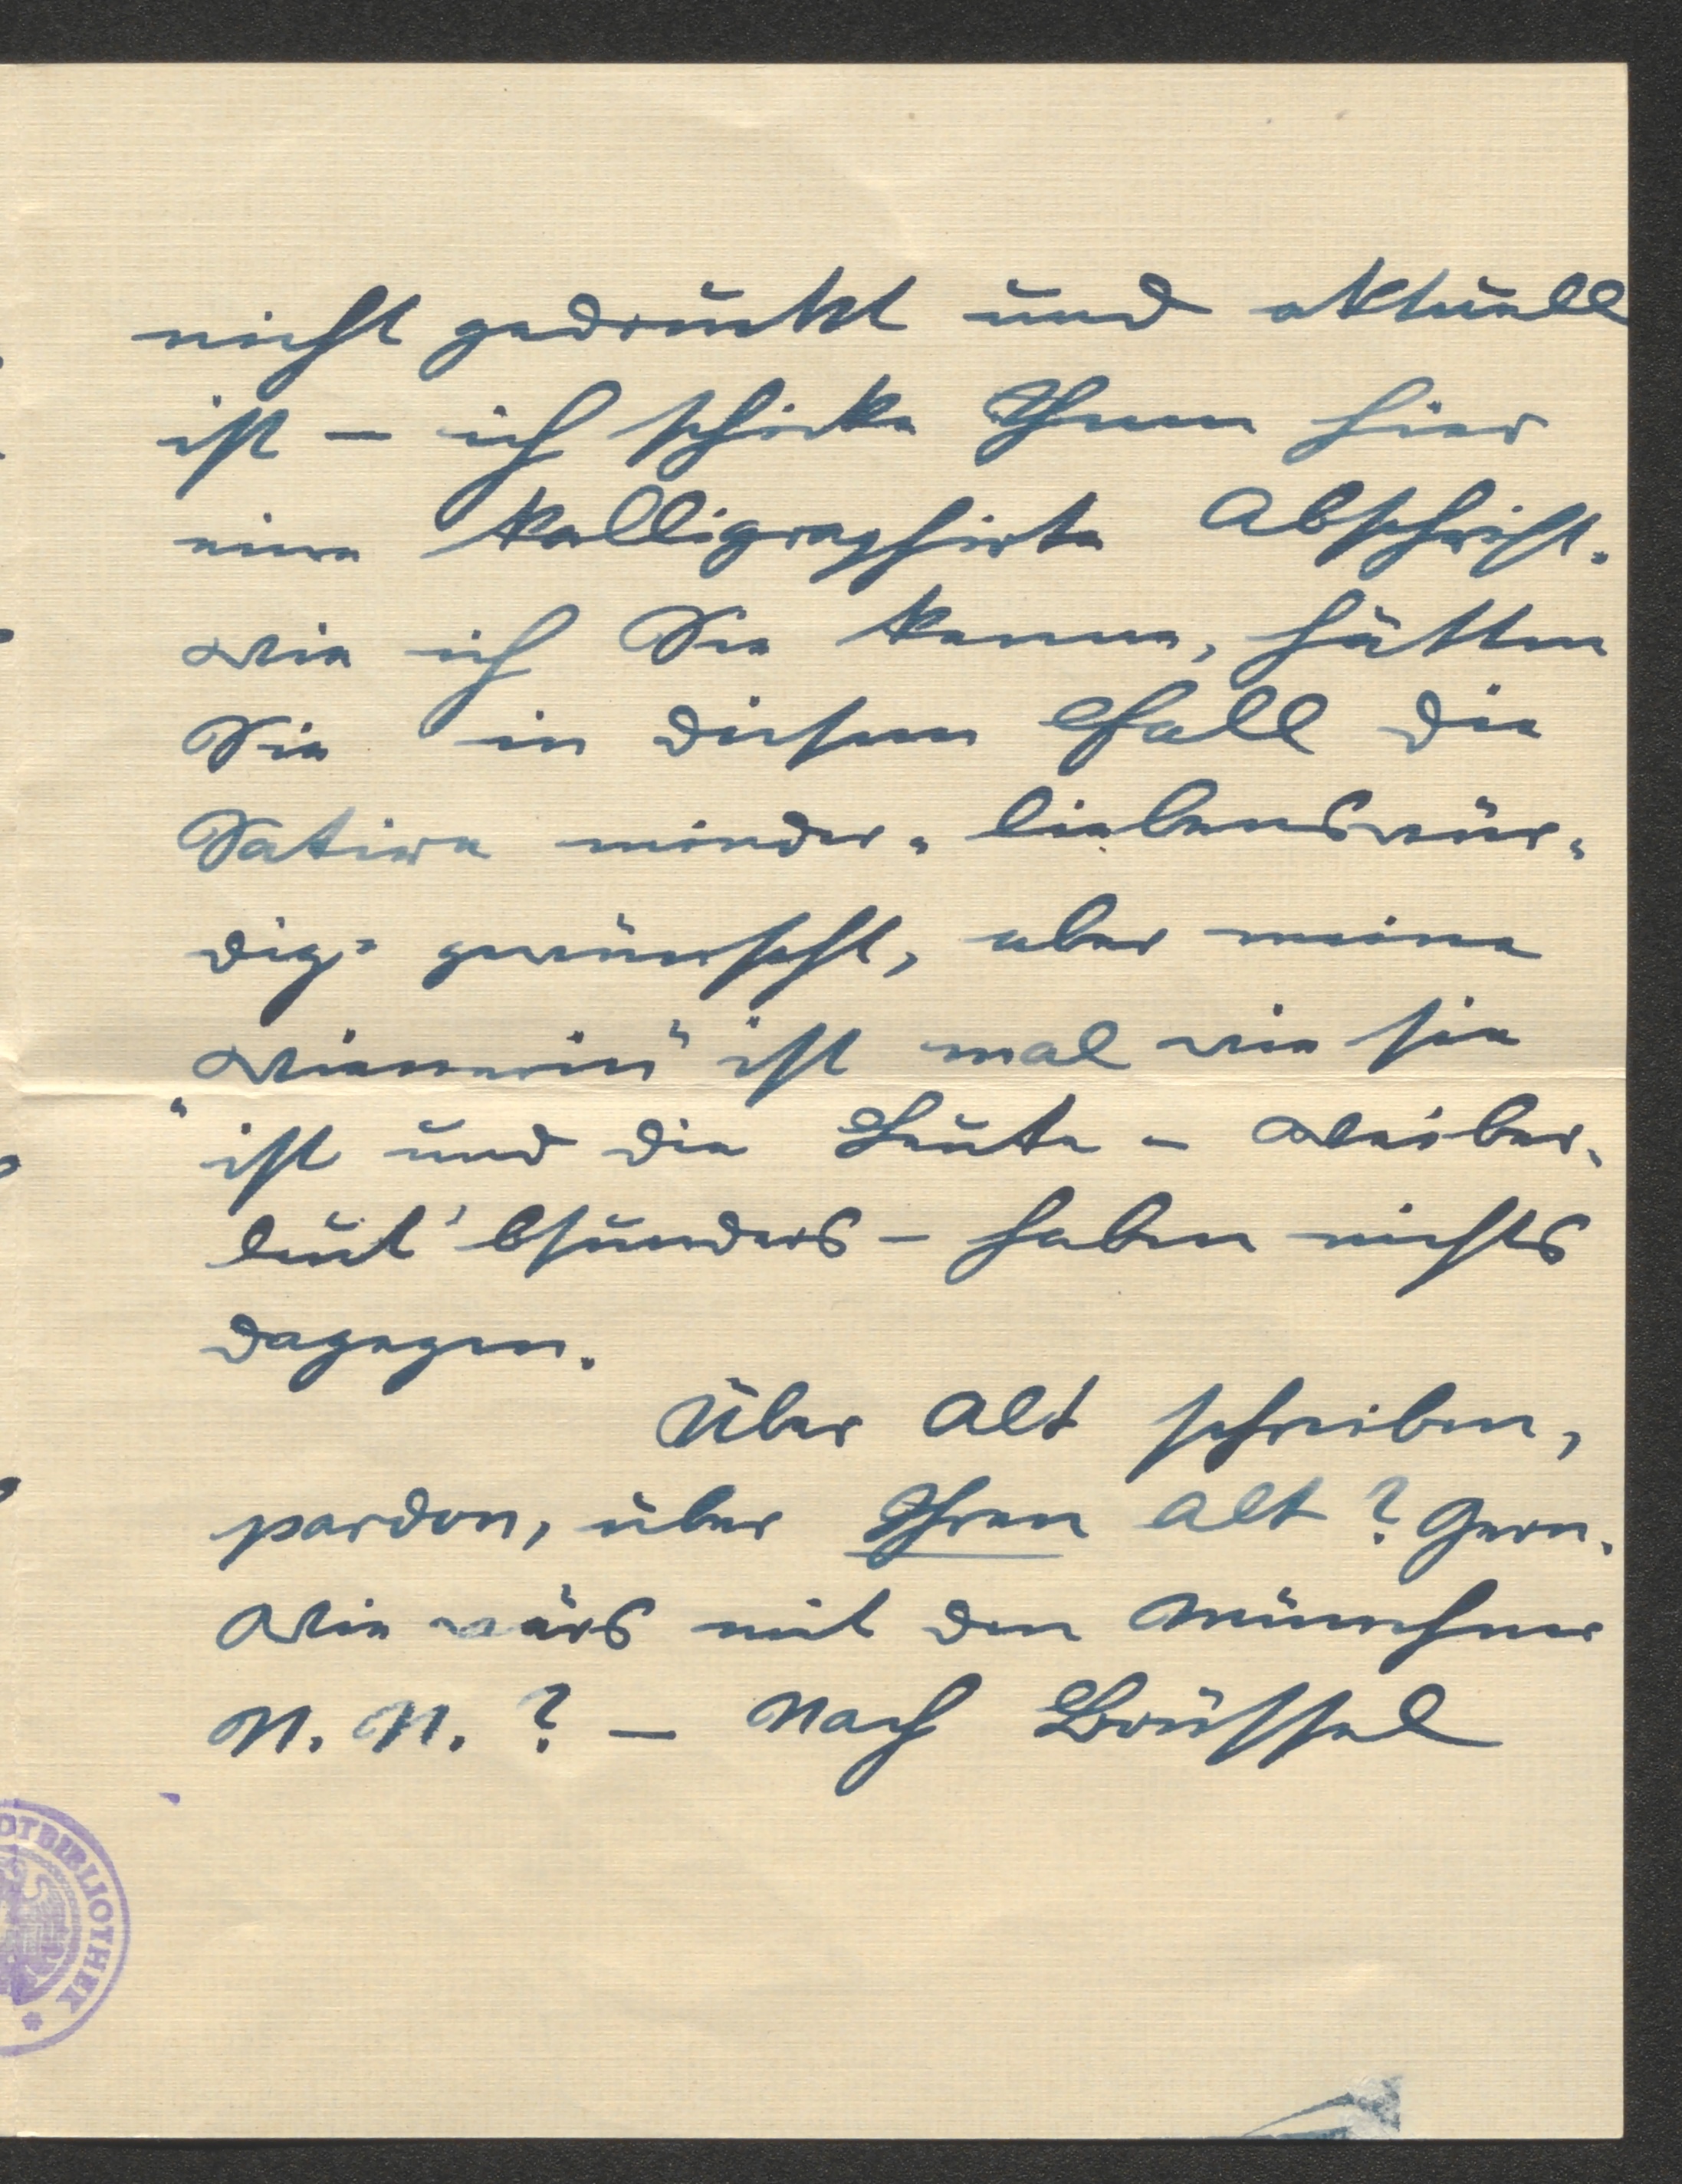 nicht gedruckt und aktuell
ist – ich schicke Ihnen hier
eine kalligraphirte Abschrift.
Wie ich Sie kenne, hätten
Sie in diesem Fall die
Satire minder „liebenswür-
dig“ gewünscht, aber meine
„Wienerin“ ist mal wie sie
ist und die Leute – Weiber-
leut' bsunders – haben nichts
dagegen.
Über Alt schreiben,
pardon, über Ihren Alt? Gern.
Wie wärs mit den Münchner
N. N.? – Nach Brüssel
DTBIBLIOTHEK